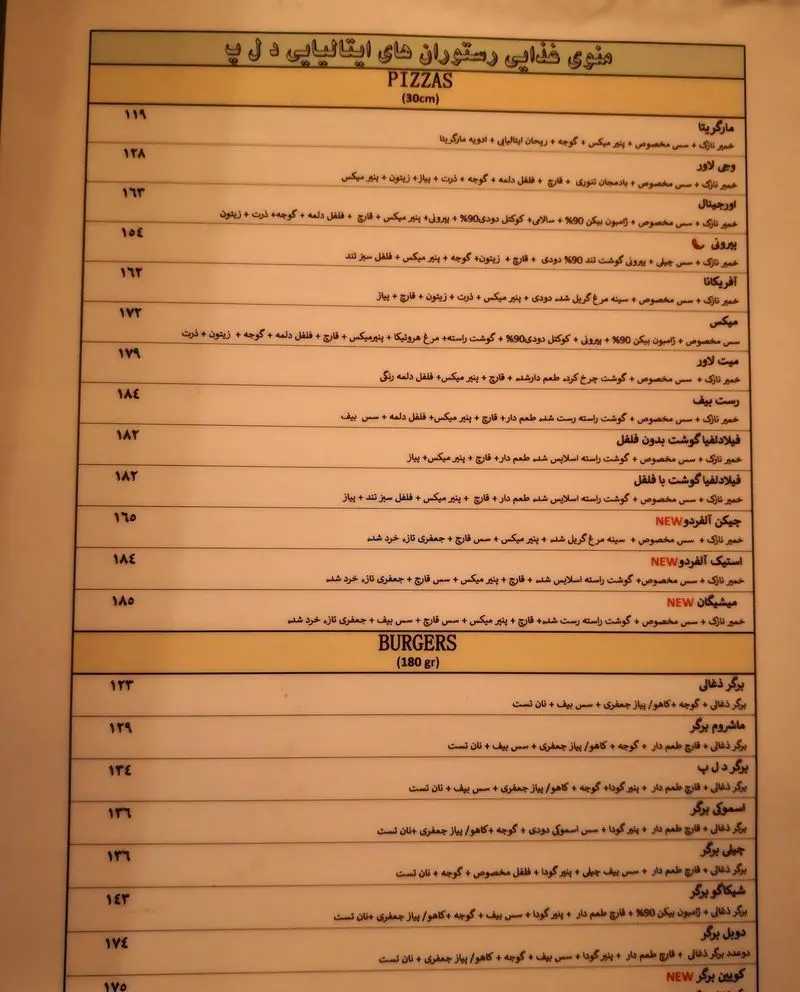 منوی غذایی رستوران های ایتالیایی د ل پ
PIZZAS
(30cm)
مارگریتا ۱۱۹
خمیر نازک + سس مخصوص + پنیر میکس + گوجه + ریحان ایتالیایی + ادویه مارگریتا
وجی لاور ۱۲۸
خمیر نازک + سس مخصوص + بادمجان تنوری + قارچ + فلفل دلمه + گوجه + ذرت + پیاز+ زیتون + پنیر میکس
اورجینال ۱۶۳
خمیر نازک + سس مخصوص + ژامبون بیکن 90% + سالامی+ کوکتل دودی90% + پپرونی+ پنیر میکس + قارچ + فلفل دلمه + گوجه+ ذرت + زیتون
پپرونی ۱٥٤
خمیر نازک + سس چیلی + پپرونی گوشت تند 90% دودی + قارچ + زیتون+ گوجه + پنیر میکس + فلفل سبز تند
آفریکانا ۱٦۲
خمیر نازک + سس مخصوص + سینه مرغ گریل شده دودی + پنیر میکس + ذرت + زیتون + قارچ + پیاز
میکس ۱۷۲
سس مخصوص + ژامبون بیکن 90% + پپرونی + کوکتل دودی90% + گوشت راسته+ مرغ هروئیکا + پنیرمیکس + قارچ + فلفل دلمه + گوجه + زیتون + ذرت
میت لاور ۱۷۹
خمیر نازک + سس مخصوص + گوشت چرخ کرده طعم دارشده + قارچ + پنیر میکس+ فلفل دلمه رنگی
رست بیف ۱۸٤
خمیر نازک + سس مخصوص + گوشت راسته رست شده طعم دار+ قارچ + پنیر میکس+ فلفل دلمه + سس بیف
فیلادلفیا گوشت بدون فلفل ۱۸۲
خمیر نازک + سس مخصوص + گوشت راسته اسلایس شده طعم دار+ قارچ + پنیر میکس+ پیاز
فیلادلفیا گوشت با فلفل ۱۸۲
خمیر نازک + سس مخصوص + گوشت راسته اسلایس شده طعم دار + قارچ + پنیر میکس + فلفل سبز تند + پیاز
چیکن آلفردوNEW ۱٦٥
خمیر نازک + سس مخصوص + سینه مرغ گریل شده + پنیر میکس + سس قارچ + جعفری تازه خرد شده
استیک آلفردوNEW ۱۸٤
خمیر نازک + سس مخصوص+ گوشت راسته اسلایس شده + قارچ + پنیر میکس + سس قارچ + جعفری تازه خرد شده
میشیگان NEW ۱۸٥
خمیر نازک + سس مخصوص + گوشت راسته رست شده+ قارچ + پنیر میکس + سس قارچ + سس بیف + جعفری تازه خرد شده
BURGERS
(180 gr)
برگر ذغالی ۱۲۳
برگر ذغالی + گوجه +کاهو/ پیاز جعفری + سس بیف + نان تست
ماشروم برگر ۱۲۹
برگر ذغالی + قارچ طعم دار + گوجه + کاهو/ پیاز جعفری + سس بیف + نان تست
برگر د ل پ ۱۳٤
برگر ذغالی + قارچ طعم دار + پنیر گودا+ گوجه + کاهو/ پیاز جعفری + سس بیف + نان تست
اسموکی برگر ۱۳٦
برگر ذغالی + قارچ طعم دار + پنیر گودا + سس اسموکی دودی + گوجه +کاهو/ پیاز جعفری +نان تست
چیلی برگر ۱۳٦
برگر ذغالی + قارچ طعم دار + سس بیف چیلی + پنیر گودا + فلفل مخصوص + گوجه + نان تست
شیکاگو برگر ۱٤۳
برگر ذغالی + ژامبون بیکن 90% + قارچ طعم دار + پنیر گودا + سس بیف + گوجه +کاهو/ پیاز جعفری +نان تست
دوبل برگر ۱۷٤
دوعدد برگر ذغالی + قارچ طعم دار + پنیر گودا + سس بیف + گوجه + کاهو/ پیاز جعفری + نان تست
کویین برگر NEW ۱۷٥